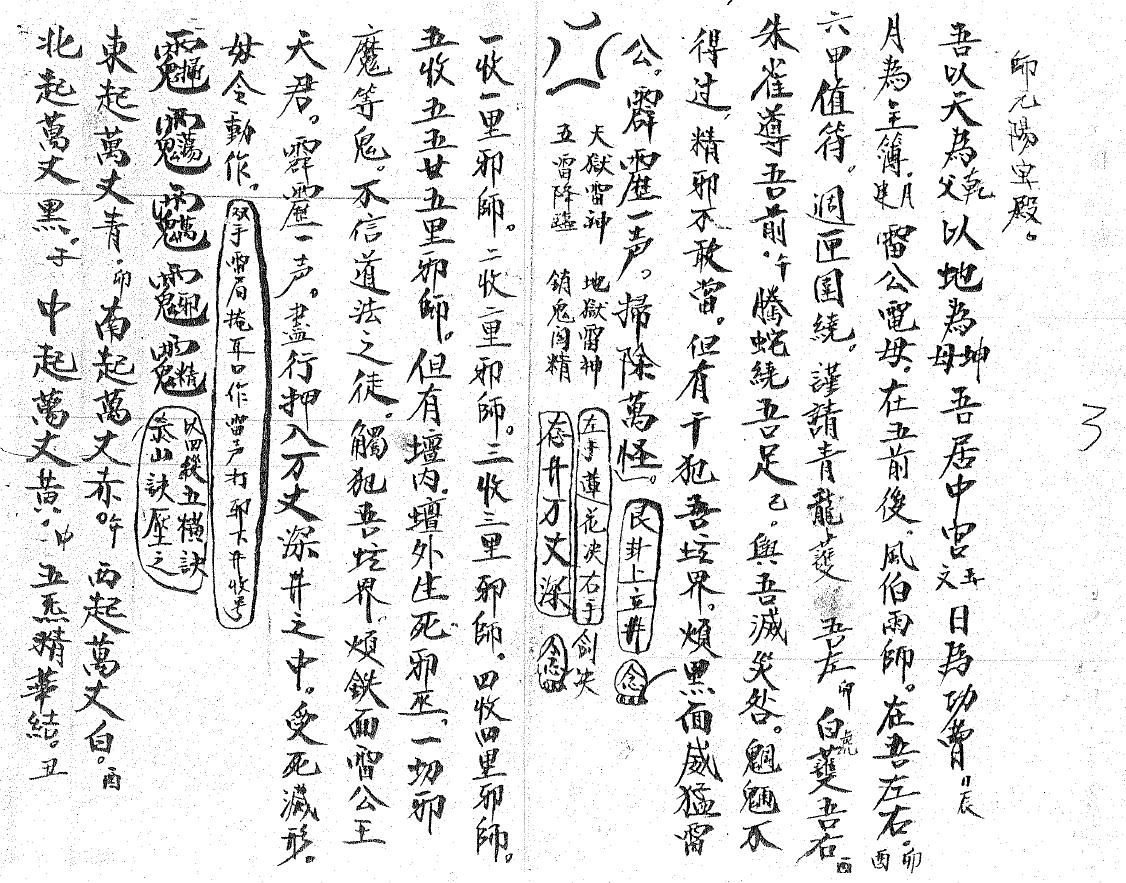 師元陽宮殿。
吾以天為父乾以地為母坤吾居中宮五文日為功曹辰
月為主簿。月建雷公電母。在五前後。風伯雨師。在吾左右。卯酉
六甲值符。週匝圍繞。謹請青龍護吾左卯白虎護吾右酉
朱雀導吾前。午騰蛇繞吾足。巳。與吾滅災咎。魍魎不
得过。精邪不敢當。但有干犯吾坛界。煩黑面威猛雷
公。霹靂一声。掃除萬怪。艮卦上立井 念
天獄雷神 地獄雷神 左手蓮花決右手劍決
五雷降臨 銷鬼 精 存井万丈深 念
一收一里邪師。二收二里邪師。三收三里邪師。四收四里邪師。
五收五五廿五里邪師。但有壇內壇外生死邪巫。一切邪
魔等鬼。不信道法之徒。觸犯吾坛界。煩鉄面雷公王
天君。霹靂一声。盡行押入万丈深井之中。受死滅形。
毋令動作。双手雷局掩耳口作雷声打邪下井收
以四縱五橫訣
泰山訣壓之
東起萬丈青。卯南起萬丈赤。午西起萬丈白。酉
北起萬丈黑。子中起萬丈黃。中五炁精華結。丑
3